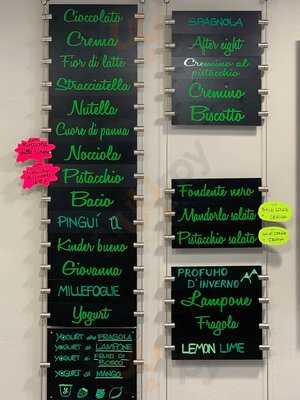 Cioccolato
Crema
Fior di latte
Stracciatella
Nutella
Cuore di panna
Nocciola
Pistacchio
Bacio
PINGUÍ
Kinder bueno
Giovanna
MILLEFOGLIE
Yogurt
YOGURT alla FRAGOLA
YOGURT al LAMPONE
YOGURT ai FRUTTI DI BOSCO
YOGURT al MANGO
SPAGNOLA
After eight
Cremino al
pistacchio
Cremino
Biscotto
Fondente nero
Mandorla salata
Pistacchio salato
PROFUMO
D'INVERNO
Lampone
Fragola
LEMON LIME